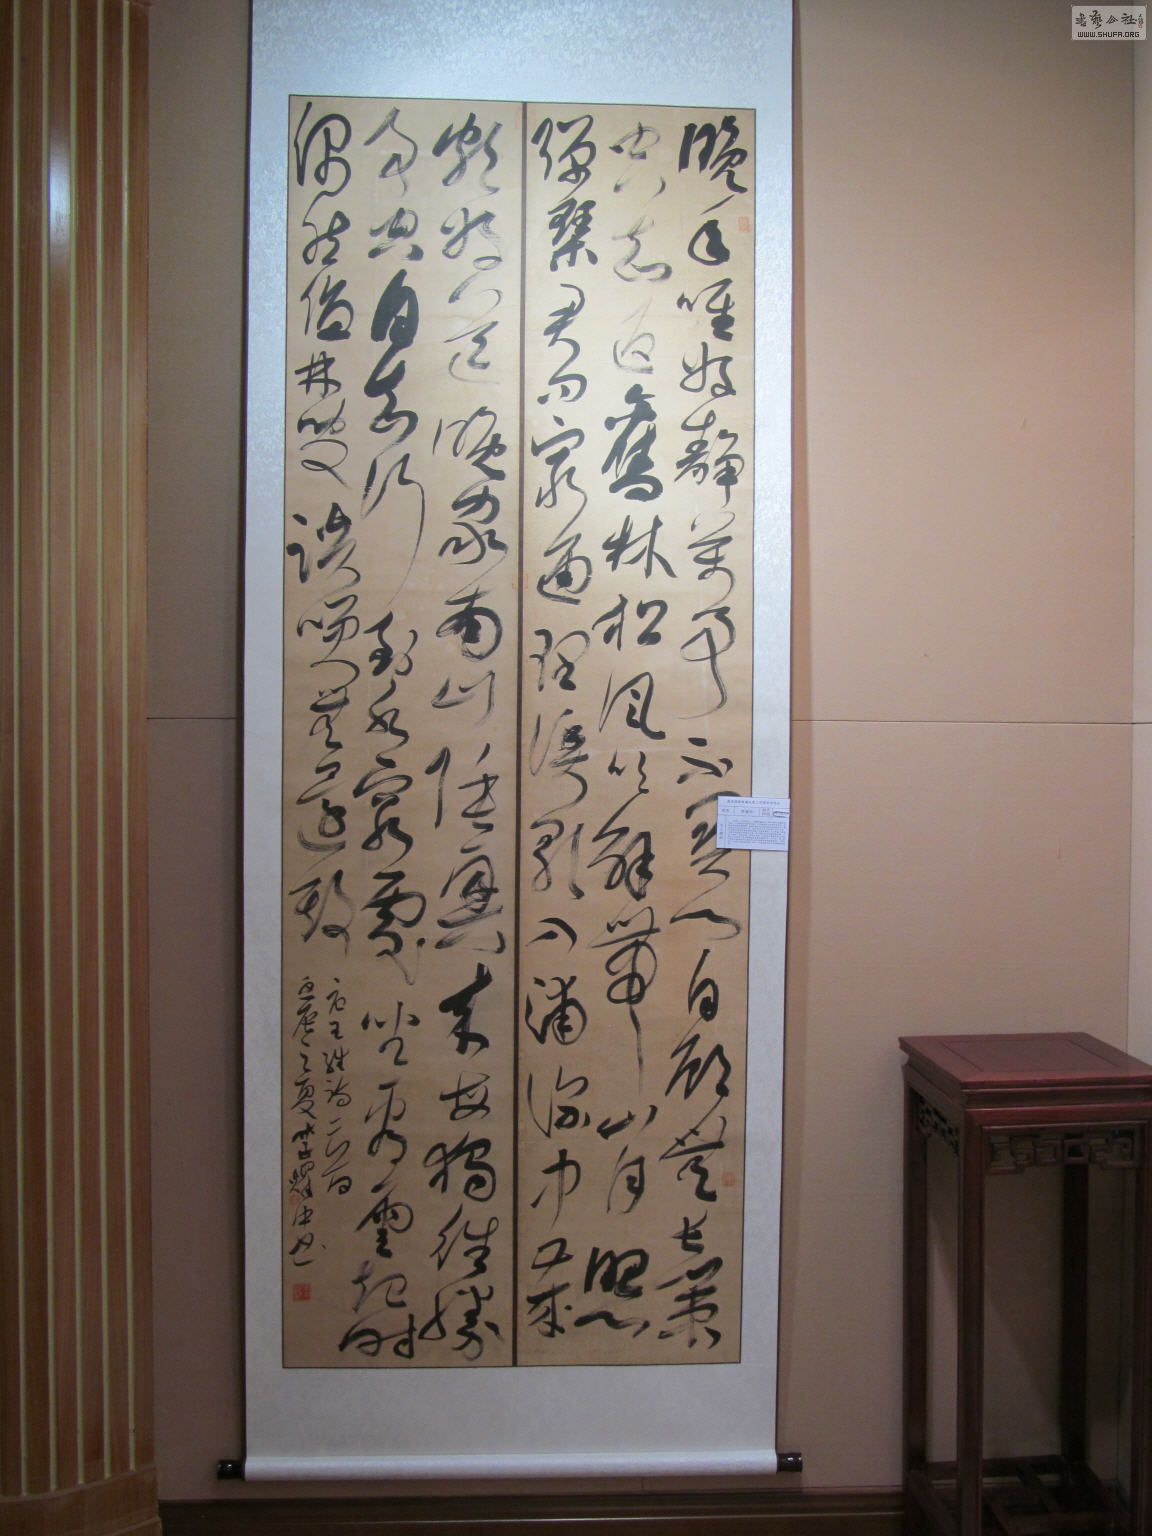 晚年唯好靜萬事不關心自顧無長策
空知返舊林松風吹解帶山月照
彈琴君問窮通理漁歌入浦深中歲
頗好道晚家南山陲興來每獨往勝
事空自知行到水窮處坐看雲起時
偶然值林叟談笑無還期
右王維詩二首
壬辰之夏
書藝公社
WWW.SHUFA.ORG